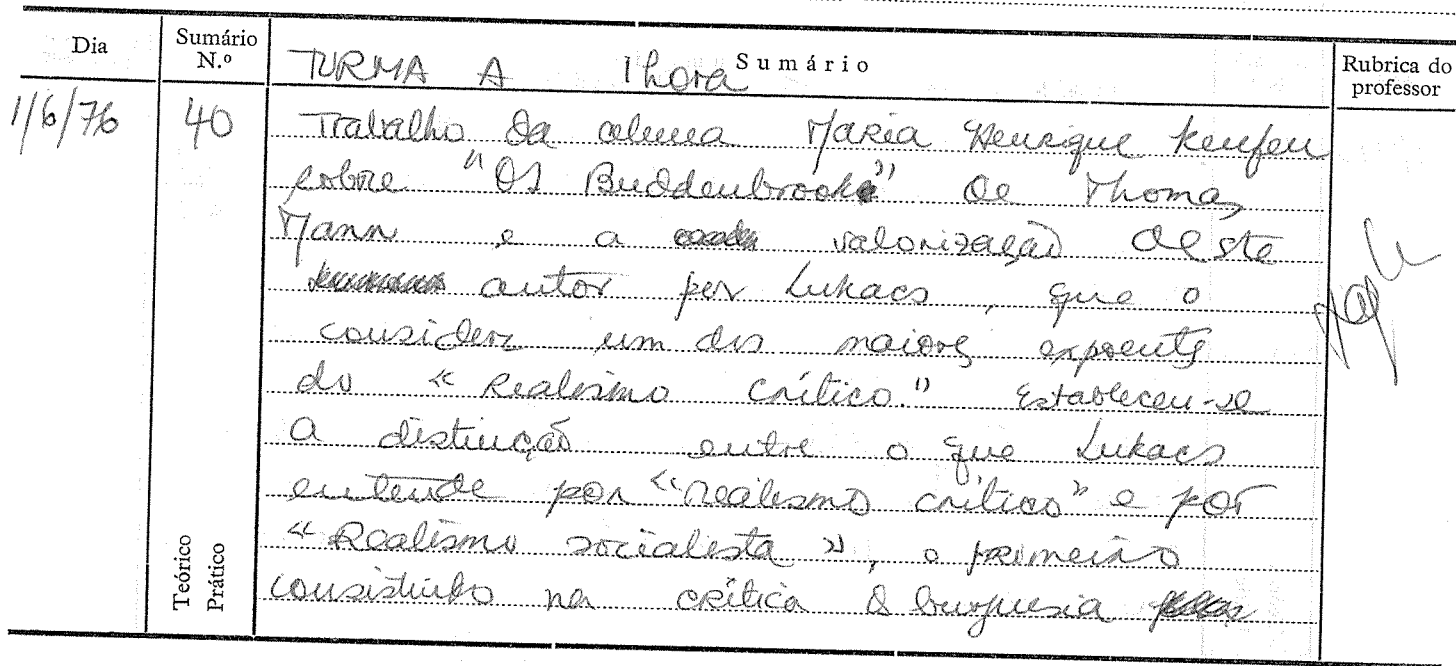 Dia
Sumário N.º
Sumário
Rubrica do professor
TURMA A 1 hora
1/6/76
40
Trabalho da aluna Maria Henrique
sobre "Os Buddenbrooks" de Thomas
Mann e a valorização deste
autor por Lukacs, que o
considera um dos maiores expoentes
do «Realismo crítico." Estabeleceu-se
a distinção entre o que Lukacs
entende por «realismo crítico» e por
«Realismo socialista», o primeiro
consistindo na crítica à burguesia
Teórico
Prático